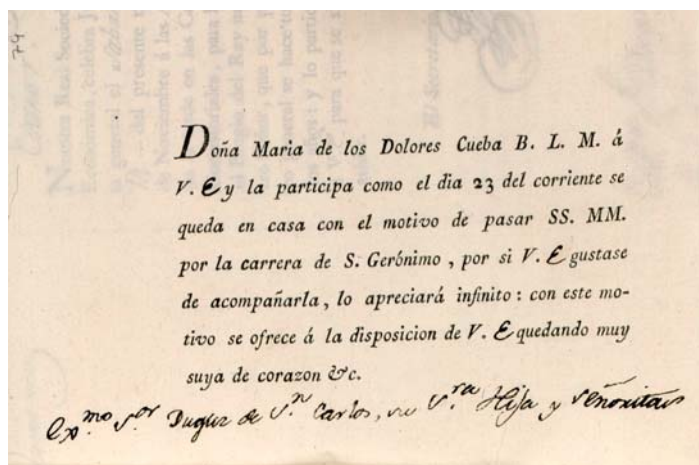 79
Doña Maria de los Dolores Cueba B. L. M. á
V. E y la participa como el dia 23 del corriente se
queda en casa con el motivo de pasar SS. MM.
por la carrera de S. Gerónimo, por si V. E gustase
de acompañarla, lo apreciará infinito: con este mo-
tivo se ofrece á la disposicion de V. E quedando muy
suya de corazon &c.
Exmo Sor Duque de Sn Carlos, su Sra Hija y señoritas